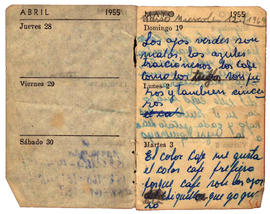 ABRIL 1955
Jueves 28
Viernes 29
Sábado 30
MAYO 1955
Domingo 1º
Los ojos verdes son
malos, los azules
traicioneros, los cafe
como los tuyos son pu
Lunes 2
ros y tambien since
ros
Martes 3
El color cafe me gusta
el color cafe prefiero
porque cafe son los ojos
que yo quie
ro